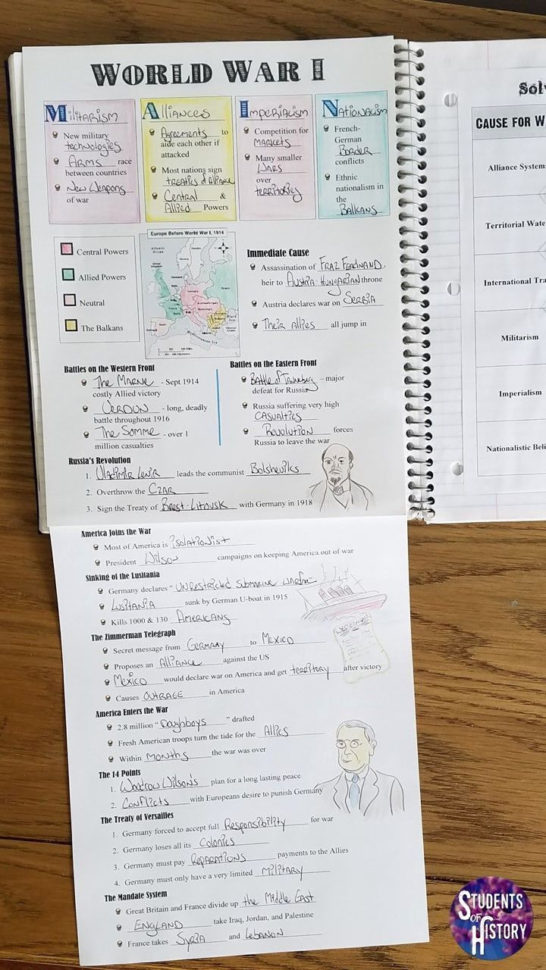 WORLD WAR I
Militarism
New military
technologies
Arms race
between countries
New Weapons
of war
Alliances
Agreements to
aide each other if
attacked
Most nations sign
treaties of alliance
Central &
Allied Powers
Imperialism
Competition for
markets
Many smaller
wars
over
territories
Nationalism
French-
German
Border
conflicts
Ethnic
nationalism in
the
Balkans
Central Powers
Allied Powers
Neutral
The Balkans
Europe Before World War I, 1914
Immediate Cause
Assassination of Fraz Ferdinand,
heir to Austria Hungarian throne
Austria declares war on Serbia
Their allies all jump in
Battles on the Western Front
The Marne - Sept 1914
costly Allied victory
Verdun - long, deadly
battle throughout 1916
The Somme - over 1
million casualties
Battles on the Eastern Front
Battle of - major
defeat for Russia
Russia suffering very high
casualties
Revolution forces
Russia to leave the war
Russia's Revolution
1. Vladimir Lenin leads the communist Bolsheviks
2. Overthrow the Czar
3. Sign the Treaty of Brest Litovsk with Germany in 1918
America Joins the War
Most of America is isolationist
President Wilson campaigns on keeping America out of war
Sinking of the Lusitania
Germany declares "unrestricted submarine warfare
Lusitania sunk by German U-boat in 1915
Kills 1000 & 130 Americans
The Zimmerman Telegraph
Secret message from Germany to Mexico
Proposes an Alliance against the US
Mexico would declare war on America and get territory after victory
Causes outrage in America
America Enters the War
2.8 million "Doughboys" drafted
Fresh American troops turn the tide for the Allies
Within months the war was over
The 14 Points
1. Woodrow Wilson's plan for a long lasting peace
2. Conflicts with Europeans desire to punish Germany
The Treaty of Versailles
1. Germany forced to accept full Responsibility for war
2. Germany loses all its Colonies
3. Germany must pay Reparations payments to the Allies
4. Germany must only have a very limited military
The Mandate System
Great Britain and France divide up the Middle East
England take Iraq, Jordan, and Palestine
France takes Syria and Lebanon
CAUSE FOR W
Alliance System
Territorial Wate
International Tra
Militarism
Imperialism
Nationalistic Beli
STUDENTS
OF
HISTORY